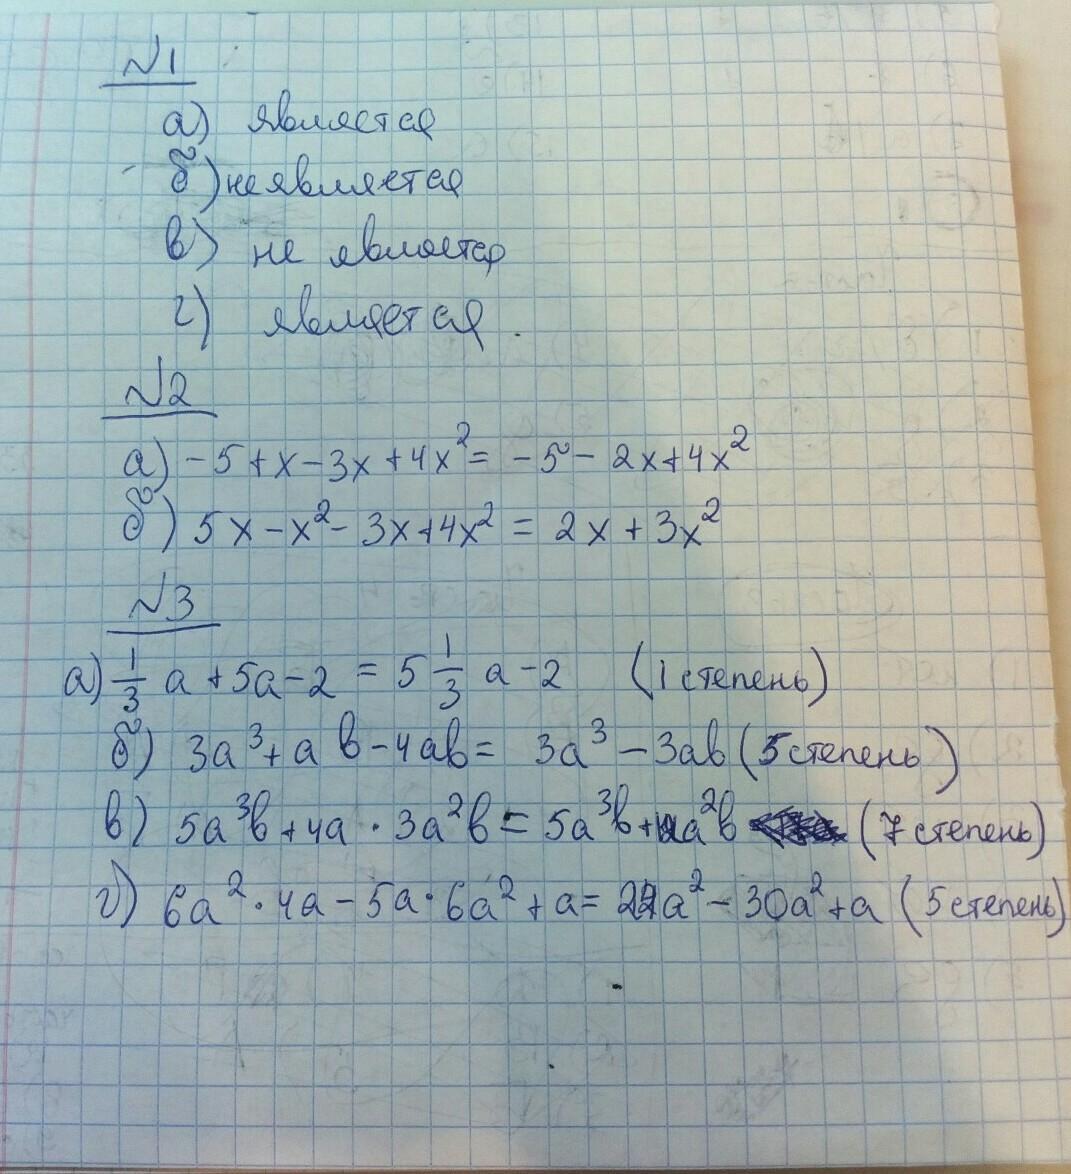 №1
а) является
б) не является
в) не является
г) является.
№2
а) -5+x-3x+4x²= -5-2x+4x²
б) 5x-x²-3x+4x² = 2x+3x²
№3
а) 1/3 a+5a-2 = 5 1/3 a-2 (1 степень)
б) 3a³+ab-4ab= 3a³-3ab (5 степень)
в) 5a³b+4a·3a²b= 5a³b+ a²b (7 степень)
г) 6a²·4a-5a·6a²+a= 24a²-30a²+a (5 степень)